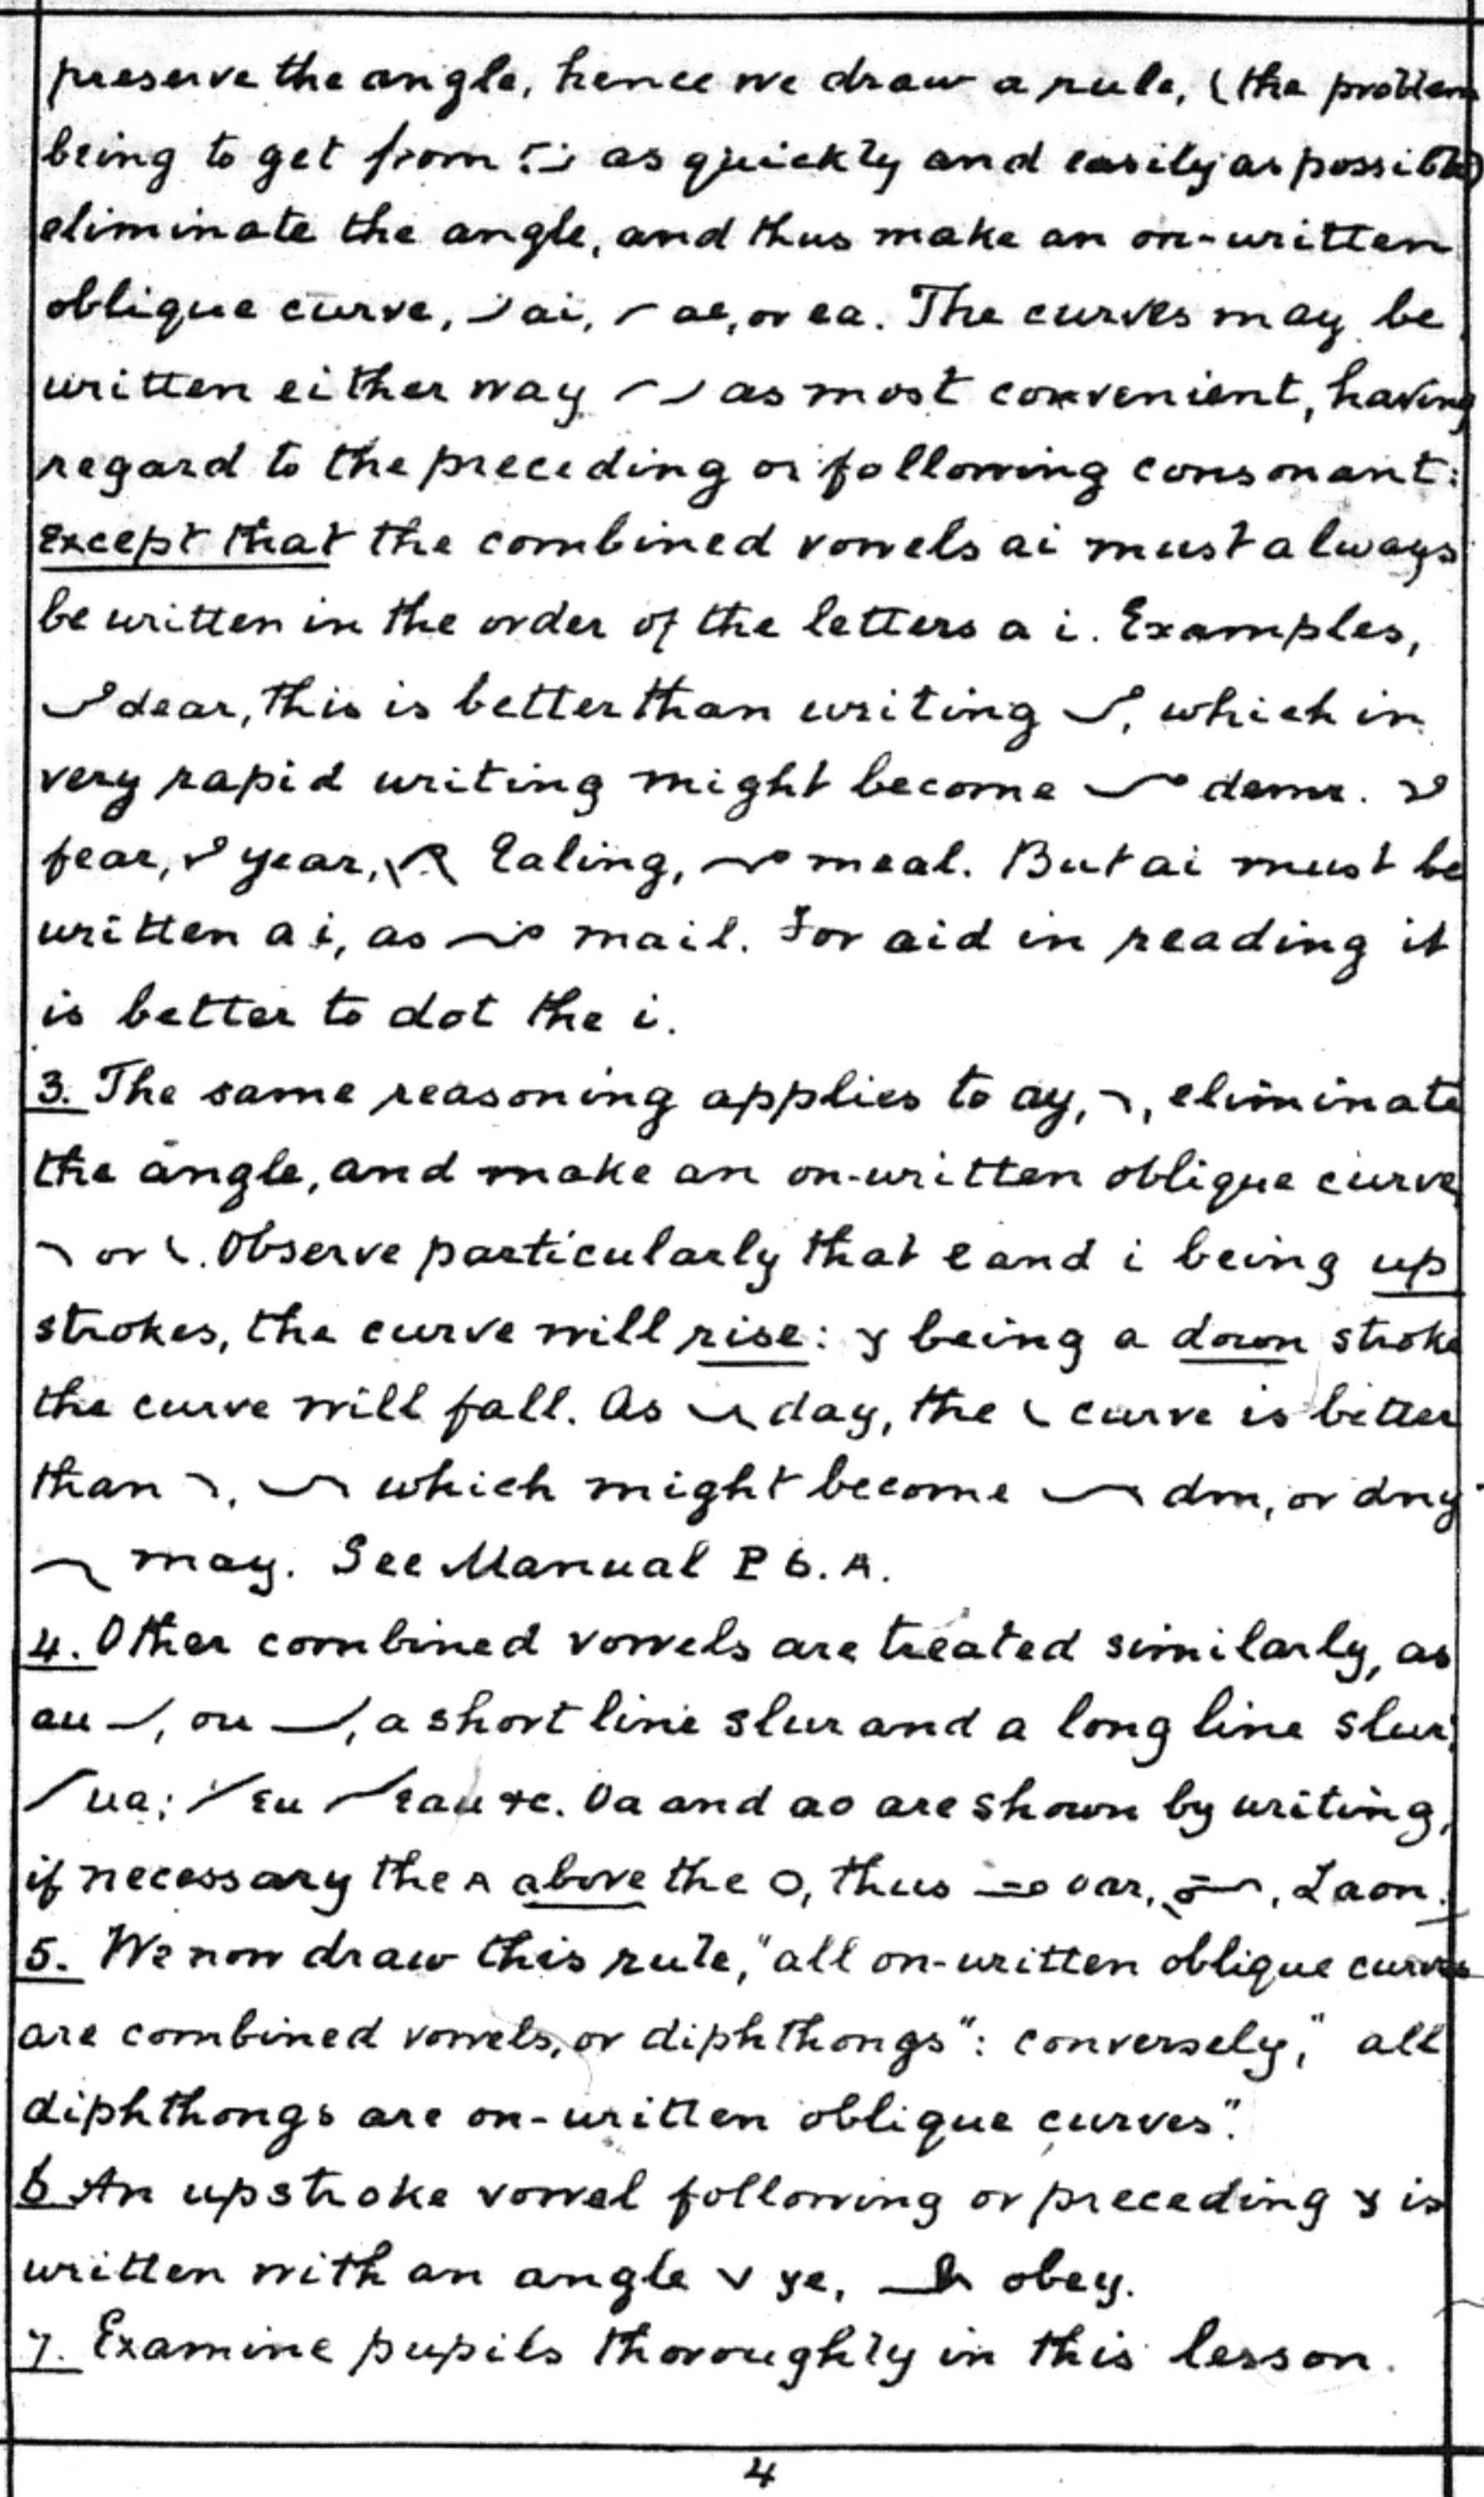 preserve the angle, hence we draw a rule, (the problem
being to get from as quickly and easily as possible)
eliminate the angle, and thus make an on-written
oblique curve, ai, ae, or ea. The curves may be
written either way as most convenient, having
regard to the preceding or following consonant:
Except that the combined vowels ai must always
be written in the order of the letters a i. Examples,
dear, this is better than writing , which in
very rapid writing might become demr.
fear, year, Ealing, meal. But ai must be
written a i, as mail. For aid in reading it
is better to dot the i.
3. The same reasoning applies to ay, , eliminate
the angle, and make an on-written oblique curve
or . Observe particularly that e and i being up
strokes, the curve will rise: y being a down stroke
the curve will fall. As day, the curve is better
than , which might become dm, or dny
may. See Manual P 6. A.
4. Other combined vowels are treated similarly, as
au , ou , a short line slur and a long line slur;
ua; eu eau &c. Oa and ao are shown by writing,
if necessary the A above the O, thus oar, , Laon.
5. We now draw this rule, "all on-written oblique curves
are combined vowels, or diphthongs": conversely, "all
diphthongs are on-written oblique curves".
6 An upstroke vowel following or preceding y is
written with an angle ye, obey.
7. Examine pupils thoroughly in this lesson.
4